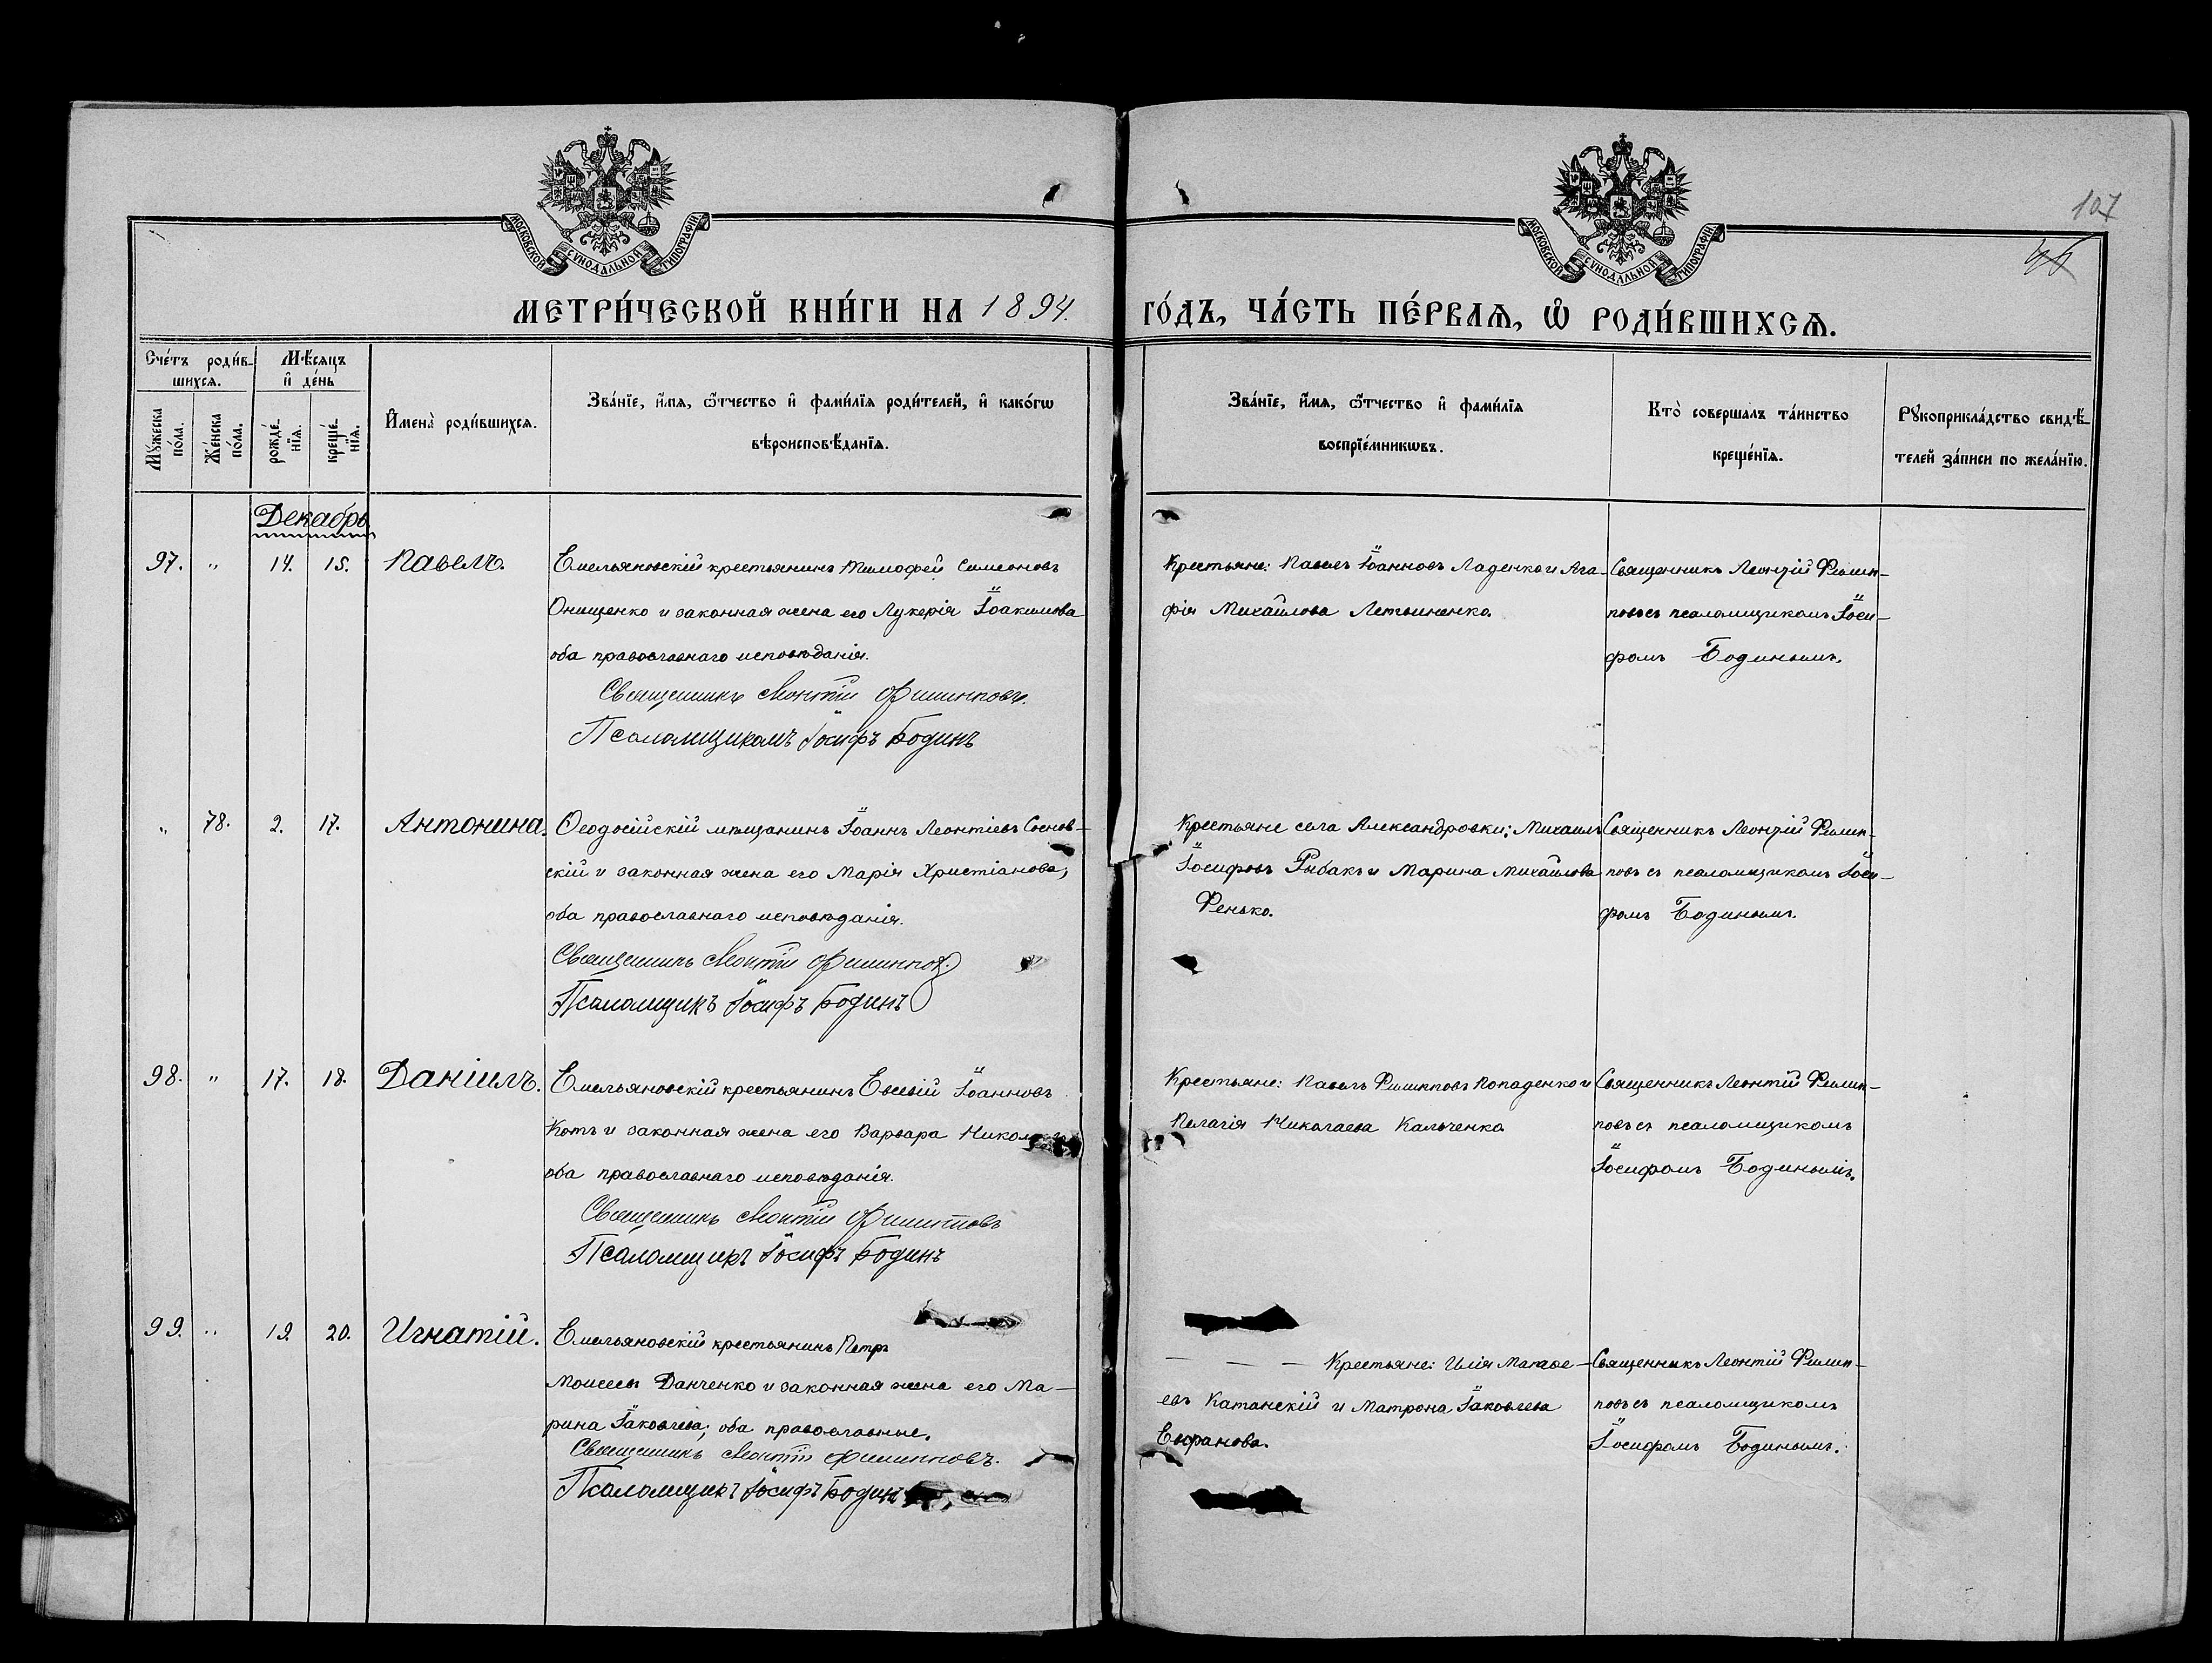 107
46
МОСКОВСКОЙ СѴНОДАЛЬНОЙ ТИПОГРАФІИ
МОСКОВСКОЙ СѴНОДАЛЬНОЙ ТИПОГРАФІИ
МЕТРИ́ЧЕСКОЙ КНИ́ГИ НА 1894. ГО́ДЪ, ЧА́СТЬ ПЕ́РВАѦ, Ѡ҆ РОДИ́ВШИХСѦ.
Сче́тъ роди́в-
шихсѧ.
Мꙋ́жеска по́ла.
Же́нска по́ла.
Мѣ́сѧцъ
и҆ де́нь
рожде́-
нїѧ.
креще́-
нїѧ.
И҆мена̀ роди́вшихсѧ.
Зва́нїе, и҆́мѧ, ѻ҆́тчество и҆ фами́лїѧ роди́телей, и҆ како́гѡ
вѣроисповѣ́данїѧ.
Зва́нїе, и҆́мѧ, ѻ҆́тчество и҆ фами́лїѧ
воспрїе́мникѡвъ.
Кто̀ соверша́лъ та́инство
креще́нїѧ.
Рꙋкоприкла́дство свидѣ́-
телей за́писи по жела́нїю.
Декабрь
97. " 14. 15. Павелъ.
Емельяновскій крестьянинъ Тимофей Симеоновъ
Онищенко и законная жена его Лукерія Іоакимова
оба православнаго исповѣданія.
Священникъ Леонтій Филипповъ.
Псаломщикомъ Іосифъ Бодинъ
Крестьяне: Павелъ Іоанновъ Ладенко и Ага-
фія Михайлова Летвиненко.
Священникъ Леонтій Филип-
повъ съ псаломщикомъ Іоси-
фомъ Бодинымъ.
" 78. 2. 17. Антонина.
Ѳеодосійскій мѣщанинъ Іоаннъ Леонтіевъ Соснов-
скій и законная жена его Марія Христіанова,
оба православнаго исповѣданія.
Священникъ Леонтій Филиппов.
Псаломщикъ Іосифъ Бодинъ
Крестьяне села Александровки: Михаилъ
Іосифовъ Рыбакъ и Марина Михайлова
Фенько.
Священникъ Леонтій Филип-
повъ съ псаломщикомъ Іоси-
фомъ Бодинымъ.
98. " 17. 18. Даніилъ.
Емельяновскій крестьянинъ Евсевій Іоанновъ
Котъ и законная жена его Варвара
оба православнаго исповѣданія.
Священникъ Леонтій Филипповъ
Псаломщикъ Іосифъ Бодинъ
Крестьяне: Павелъ Филипповъ Попаденко и
Пелагія Николаева Кальченко
Священникъ Леонтій Филип-
повъ съ псаломщикомъ
Іосифомъ Бодинымъ.
99. " 19. 20. Игнатій.
Емельяновскій крестьянинъ Петръ
Моисеевъ Данченко и законная жена его Ма-
рина Іаковлева; оба православные.
Священникъ Леонтій Филипповъ.
Псаломщикъ Іосифъ Бодинъ
— — — Крестьяне: Илія Матѳе-
евъ Катанскій и Матрона Іаковлева
Ефранова.
Священникъ Леонтій Филип-
повъ съ псаломщикомъ
Іосифомъ Бодинымъ.